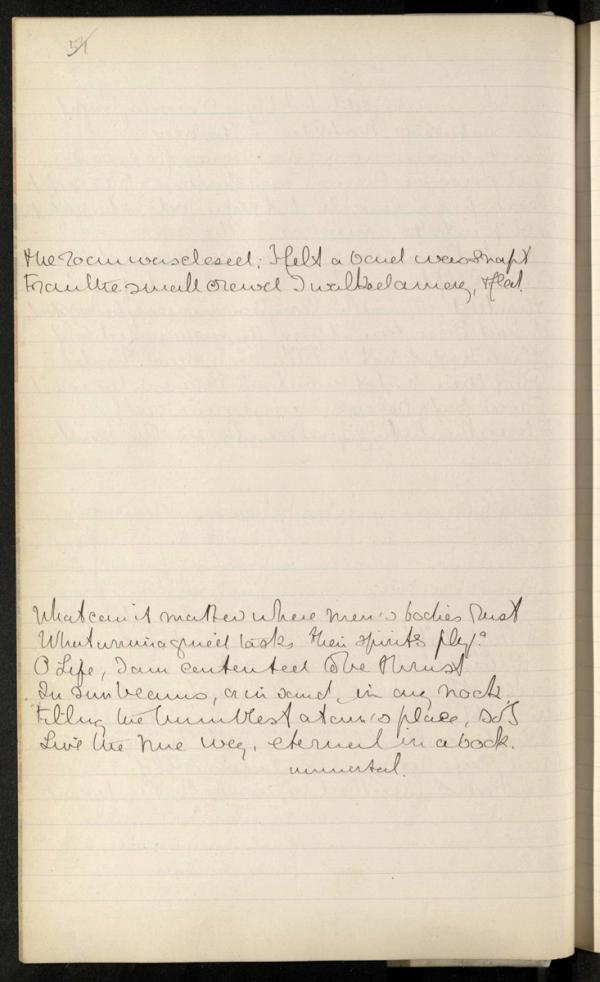 54
The room was closed; I felt a band was snapt
From the small crowd I walked away, & fled.
What can it matter where men's bodies rust
What unimagined tasks their spirits ply?
O Life, I am contented to be thrust
In sunbeams, or in sand, in any nook,
Filling the humblest atom's place, so I
Live the true way, eternal in a book.
immortal.